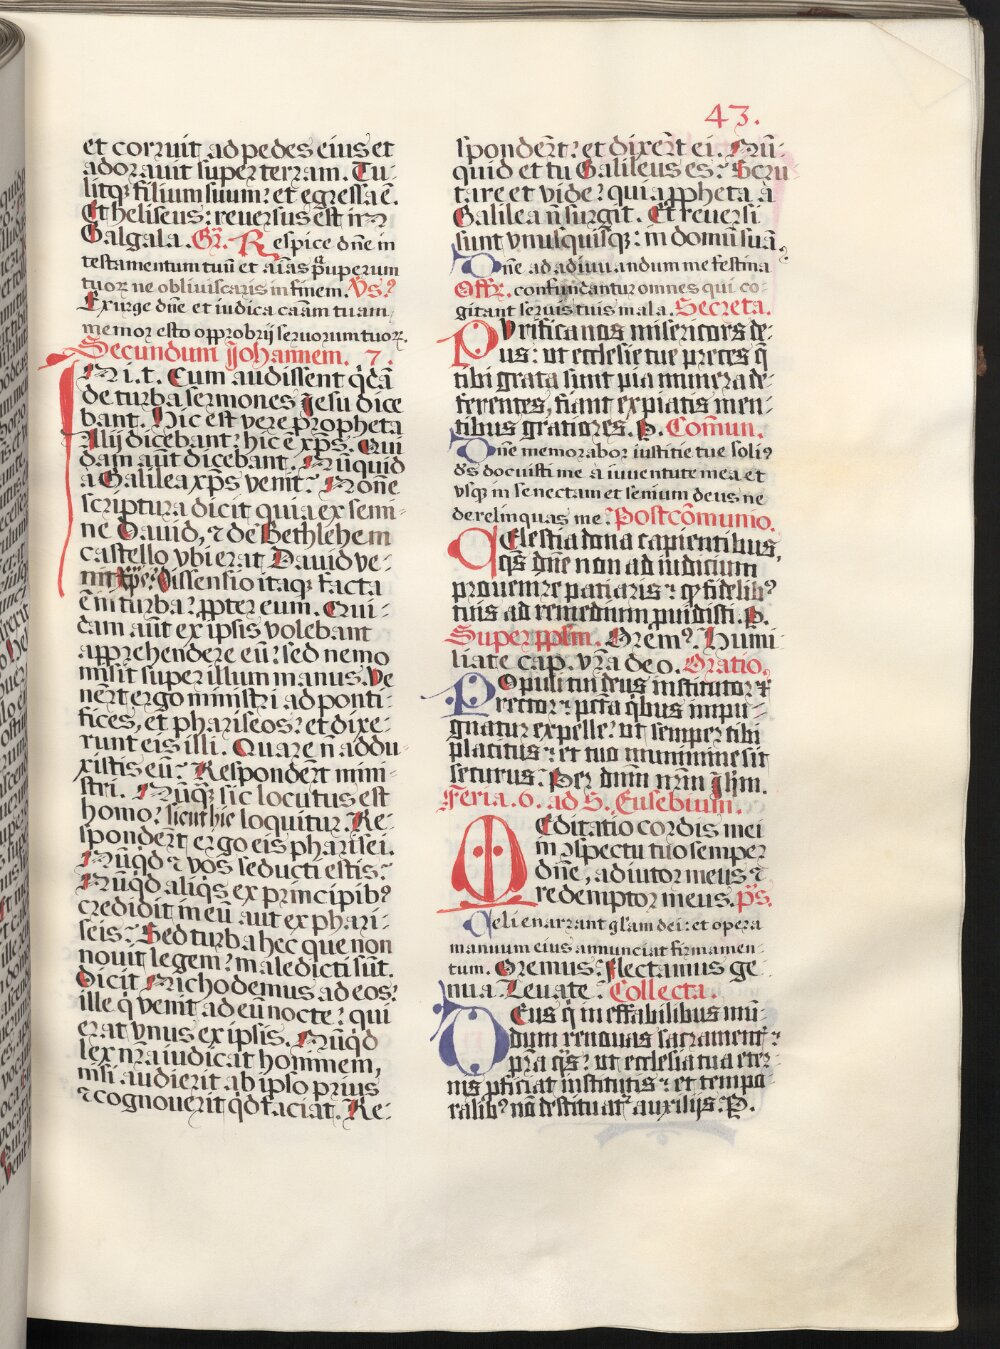 43.
et corruit ad pedes eius et
adorauit super terram. Tu-
litq; filium suum: et egressa ē.
Et heliseus: reuersus est in
Galgala. Gr. Respice dñe in
testamentum tuū et aīas pauperum
tuoꝝ ne obliuiscaris in finem. Vs.
Exurge dñe et iudica caām tuam
memor esto opprobrij seruorum tuoꝝ.
Secundum Johannem. 7.
IN i. t. Cum audissent q̇dā
de turba sermones Jesu dice
bant. Hic est vere propheta
Alij dicebant: hic ē xp̄s. Qui
dam aūt dicebant. Nūquid
a Galilea xp̄s venit? Nōne
scriptura dicit quia ex semi-
ne Dauid, ⁊ de Bethlehem
castello vbi erat Dauid ve-
nit xp̄s? Dissensio itaq; facta
ē in turba: ꝓpter eum. Qui-
dam aūt ex ipsis volebant
apprehendere eū: sed nemo
misit super illum manus. Ve
nērt ergo ministri ad ponti-
fices, et phariseos: et dixe-
runt eis illi. Quare n̄ addu-
xistis eū? Respondēr̄t mini-
stri. Nūq̄; sic locutus est
homo: sicut hic loquitur. Re-
spondēr̄t ergo eis pharisei.
Nūqd ⁊ vos seducti estis?
Nūqd aliq̇s ex principib9
credidit in eū aut ex phari-
seis? Sed turba hec que non
nouit legem: maledicti sūt.
Dicit Nichodemus ad eos:
ille q̇ venit ad eū nocte: qui
erat vnus ex ipsis. Nūqd
lex nr̄a iudicat hominem,
nisi audierit ab ipso prius
⁊ cognouerit qd faciat. Re-
spondēr̄t: et dixēr̄t ei. Nū-
quid et tu Galileus es? Scru
tare et vide: qui a ꝓpheta à
Galilea n̄ surgit. Et reuersi
sunt vnusquisq;: in domū suā.
Dñe ad adiuuandum me festina
Offr. confundantur omnes qui co-
gitant seruis tuis mala. Secreta.
PUrifica nos misericors de-
us: ut ecclesie tue preces q̄
tibi grata sunt pia munera de-
ferentes, fiant expiatis men-
tibus gratiores. P. Comūn.
Dñe memorabor iustitie tue soli9
ds docuisti me à iuuentute mea et
vsq; in senectam et senium deus ne
derelinquas me. Postcōmunio.
CElestia dona capientibus,
qs̄ dñe non ad iudicium
prouenire patiaris: q fidelib9
tuis ad remedium puidisti. P.
Super pplm̄. Orem9. Humi-
liate cap. vr̄a deo. Oratio.
POpuli tui deus institutor ⁊
rector: pctā q̇bus impu-
gnatur expelle: ut semper tibi
placitus: et tuo munimine sit
securus. Per dnm nr̄m Jhm.
Feria. 6. ad S. Eusebium.
MEditatio cordis mei
in cōspectu tuo semper
dñe, adiutor meus ⁊
redemptor meus. ps.
Celi enarrant glām dei: et opera
manuum eius annunciat firmamen-
tum. Oremus. Flectamus ge
nua. Leuate. Collecta.
DEus q̇ ineffabilibus mū-
dum renouas sacrament:
prā qs̄: ut ecclesia tua eter-
nis pficiat institutis: et tempo
ralib9 nō destituat auxilijs. P.